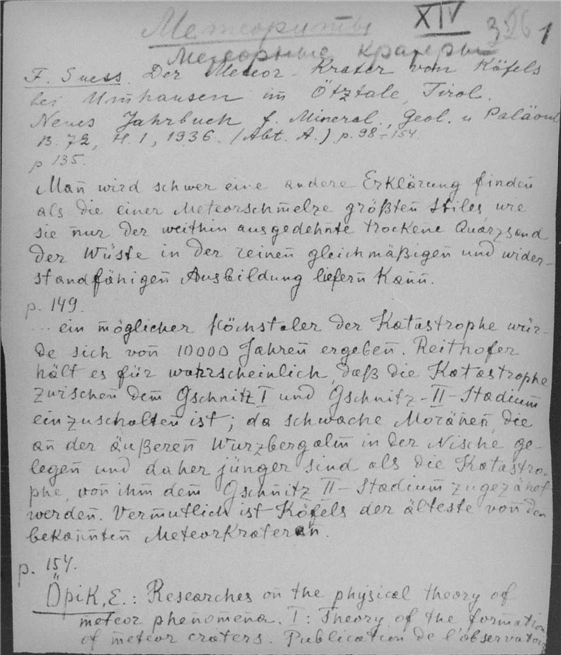 Метеориты XIV 326 1
Метеорные кратеры
F. Suess. Der Meteor-Krater vom Köfels
bei Umhausen im Ötztale, Tirol.
Neues Jahrbuch f. Mineral., Geol. u Paläont
B. 72, H. 1, 1936. (Abt. A.) p. 98-154
p 135.
Man wird schwer eine andere Erklärung finden
als die einer Meteorschmelze größten Stiles wie
sie nur der weithin ausgedehnte trockene Quarzsand
der Wüste in der reinen gleichmäßigen und wider-
standfähigen Ausbildung liefern kann.
p. 149.
... ein möglicher Höchstalter der Katastrophe wür-
de sich von 10000 Jahren ergeben. Reithofer
hält es für wahrscheinlich, daß die Katastrophe
zwischen dem Gschnitz I und Gschnitz-II-Stadium
einzuschalten ist; da schwache Moränen, die
an der äußeren Wurzbergalm in der Nische ge-
legen und daher jünger sind als die Katastro-
phe, von ihm dem Gschnitz II-Stadium zugezählt
werden. Vermutlich ist Köfels der älteste von den
bekannten Meteorkratern.
p. 154.
Öpik, E.: Researches on the physical theory of
meteor phenomena. I: Theory of the formation
of meteor craters. Publication de l'observatoire